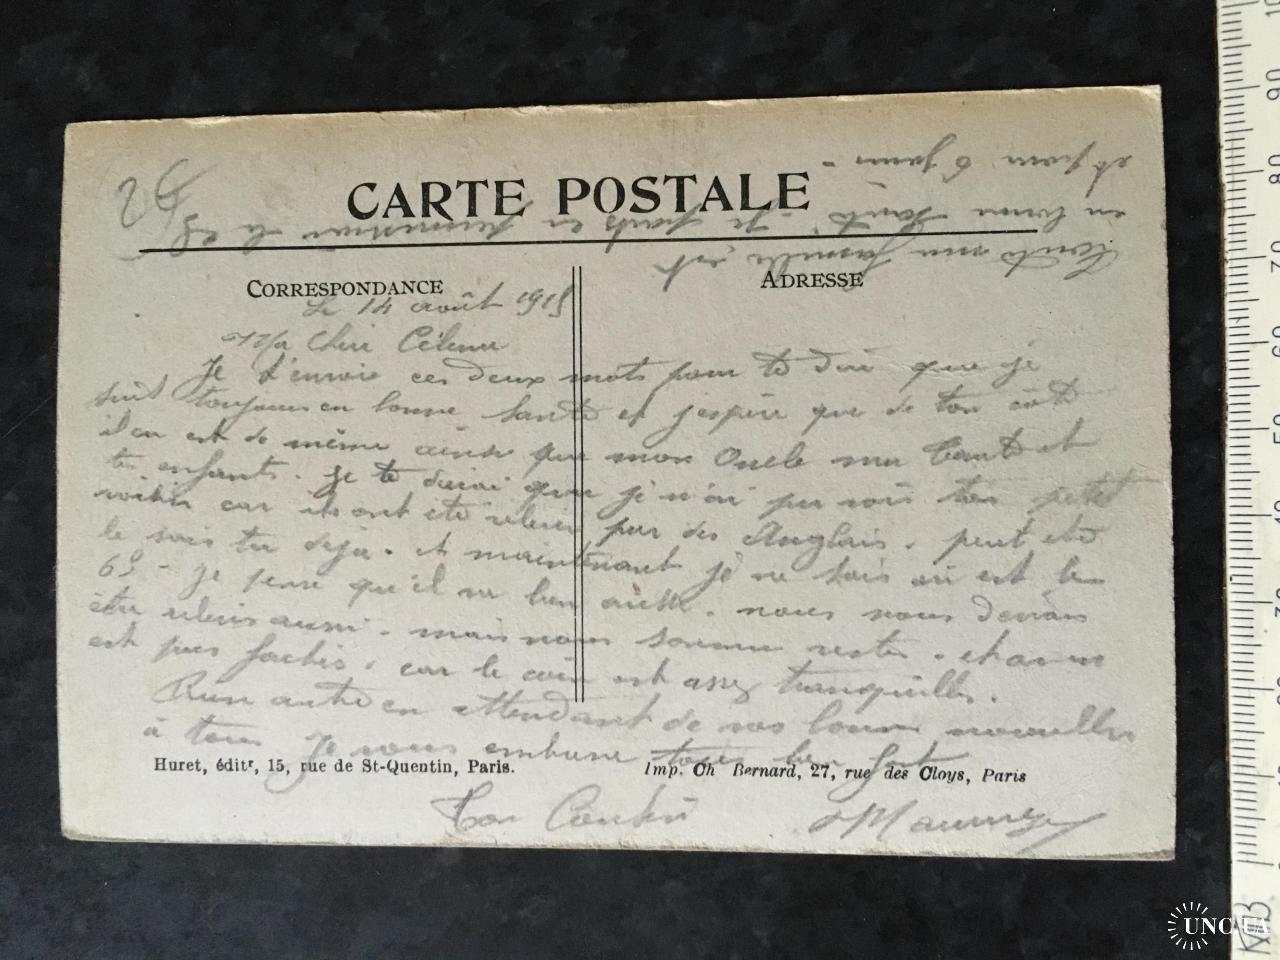 CARTE POSTALE
CORRESPONDANCE
ADRESSE
Le 14 août 1915
Ma Chère
Je t'envoie ces deux mots pour te dire que je
suis toujours en bonne santé et j'espère que de ton côté
il en est de même ainsi que mon Oncle ma tante et
tes enfants. Je te dirai que je n'ai pu voir ton petit
voisin car ils ont été relevés par des Anglais. peut etre
le sais tu deja. et maintenant je ne sais où est le
6e - Je pense qu'il va bien aussi. nous nous devions
être relevés aussi. mais nous sommes restés.
est pas fachés. car le coin est assez tranquille.
Rien autre en attendant de vos bonnes nouvelles
à tous Je vous embrasse tous bien fort
Ton Cousin
Toute ma famille est
en bonne santé. Je pars en permission le 28
et pour 6 jours -
Huret, éditr, 15, rue de St-Quentin, Paris.
Imp. Ch Bernard, 27, rue des Cloys, Paris
UNC.UA